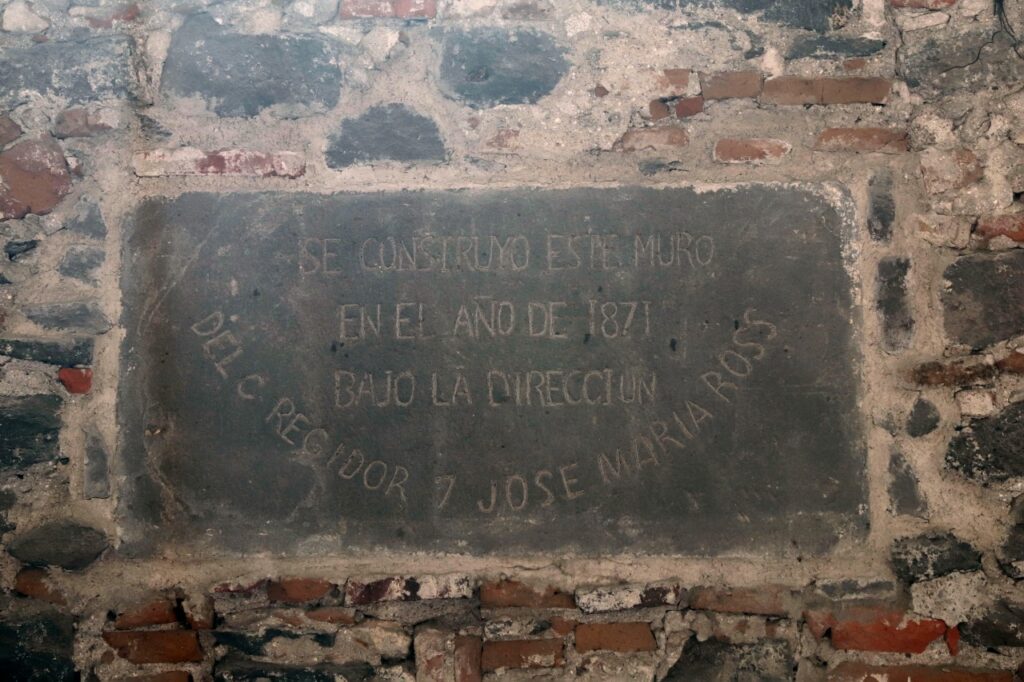 SE CONSTRUYO ESTE MURO
EN EL AÑO DE 1871
BAJO LA DIRECCIUN
DEL C REGIDOR 7 JOSE MARIA ROSS